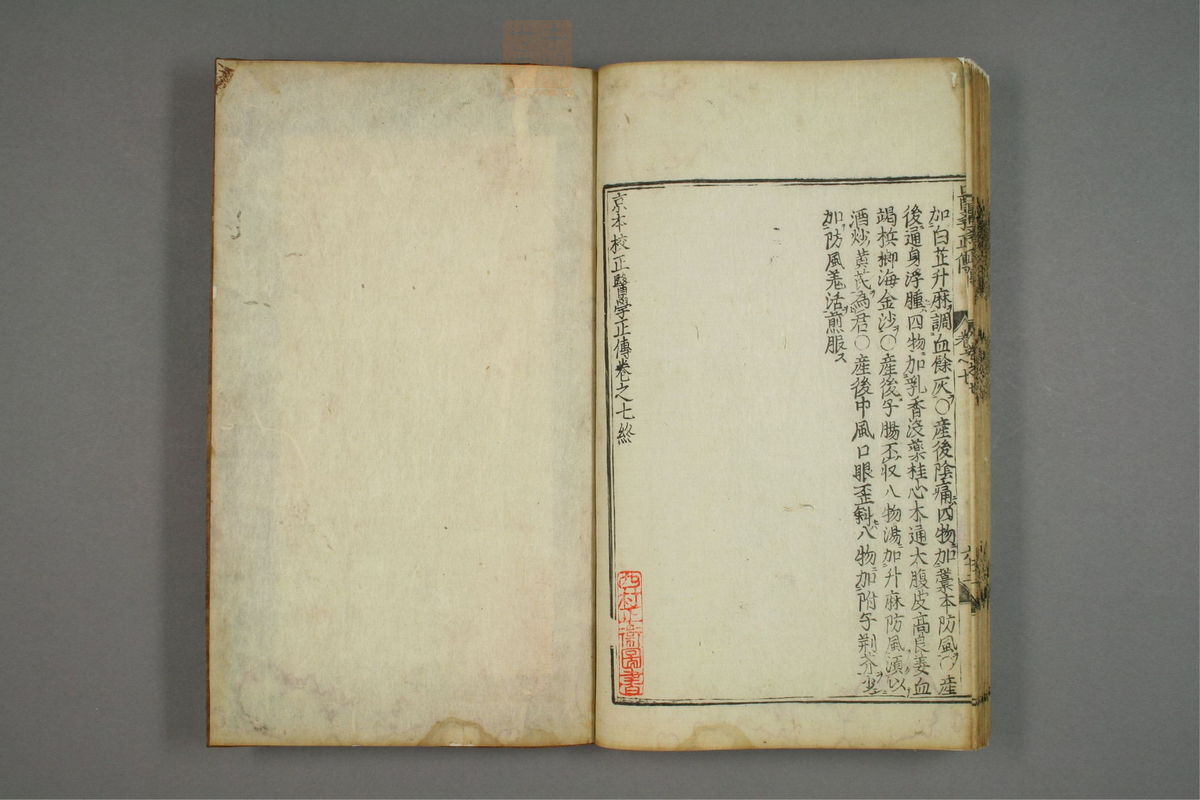 加白芷升麻調血餘灰〇産後陰痛四物加藁本防風〇産
後通身浮腫四物加乳香没藥桂心木通大腹皮高良姜血
竭梹榔海金沙〇産後子腸不収八物湯加升麻防風須以
酒炒黄芪為君〇産後中風口眼歪斜八物加附子荆芥少
加防風羌活煎服
京本校正醫學正傳巻之七終
西村
圖書
醫學正傳
巻之七